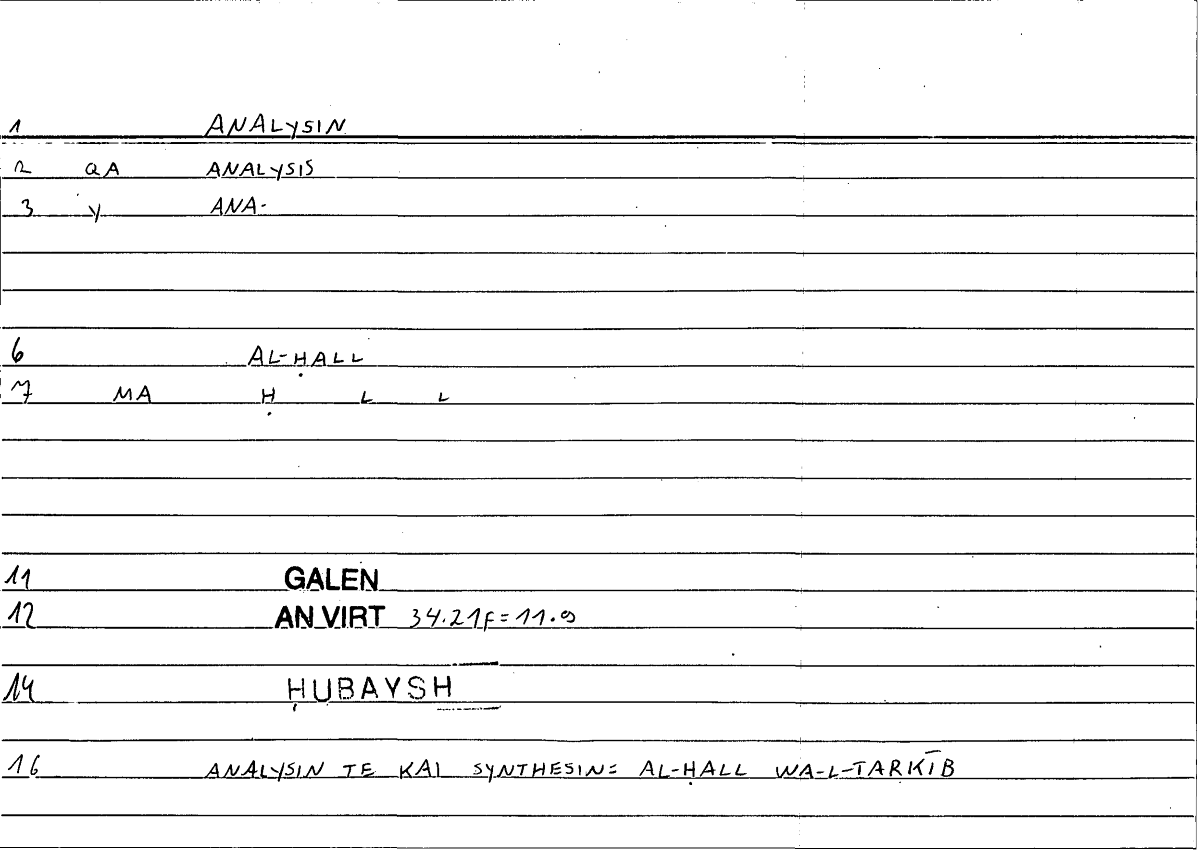 1 ANALYSIN
2 QA ANALYSIS
3 Y ANA-
6 AL-ḤALL
7 MA Ḥ L L
11 GALEN
12 AN VIRT 34.21f=11.9
14 ḤUBAYSH
16 ANALYSIN TE KAI SYNTHESIN= AL-ḤALL WA-L-TARKĪB